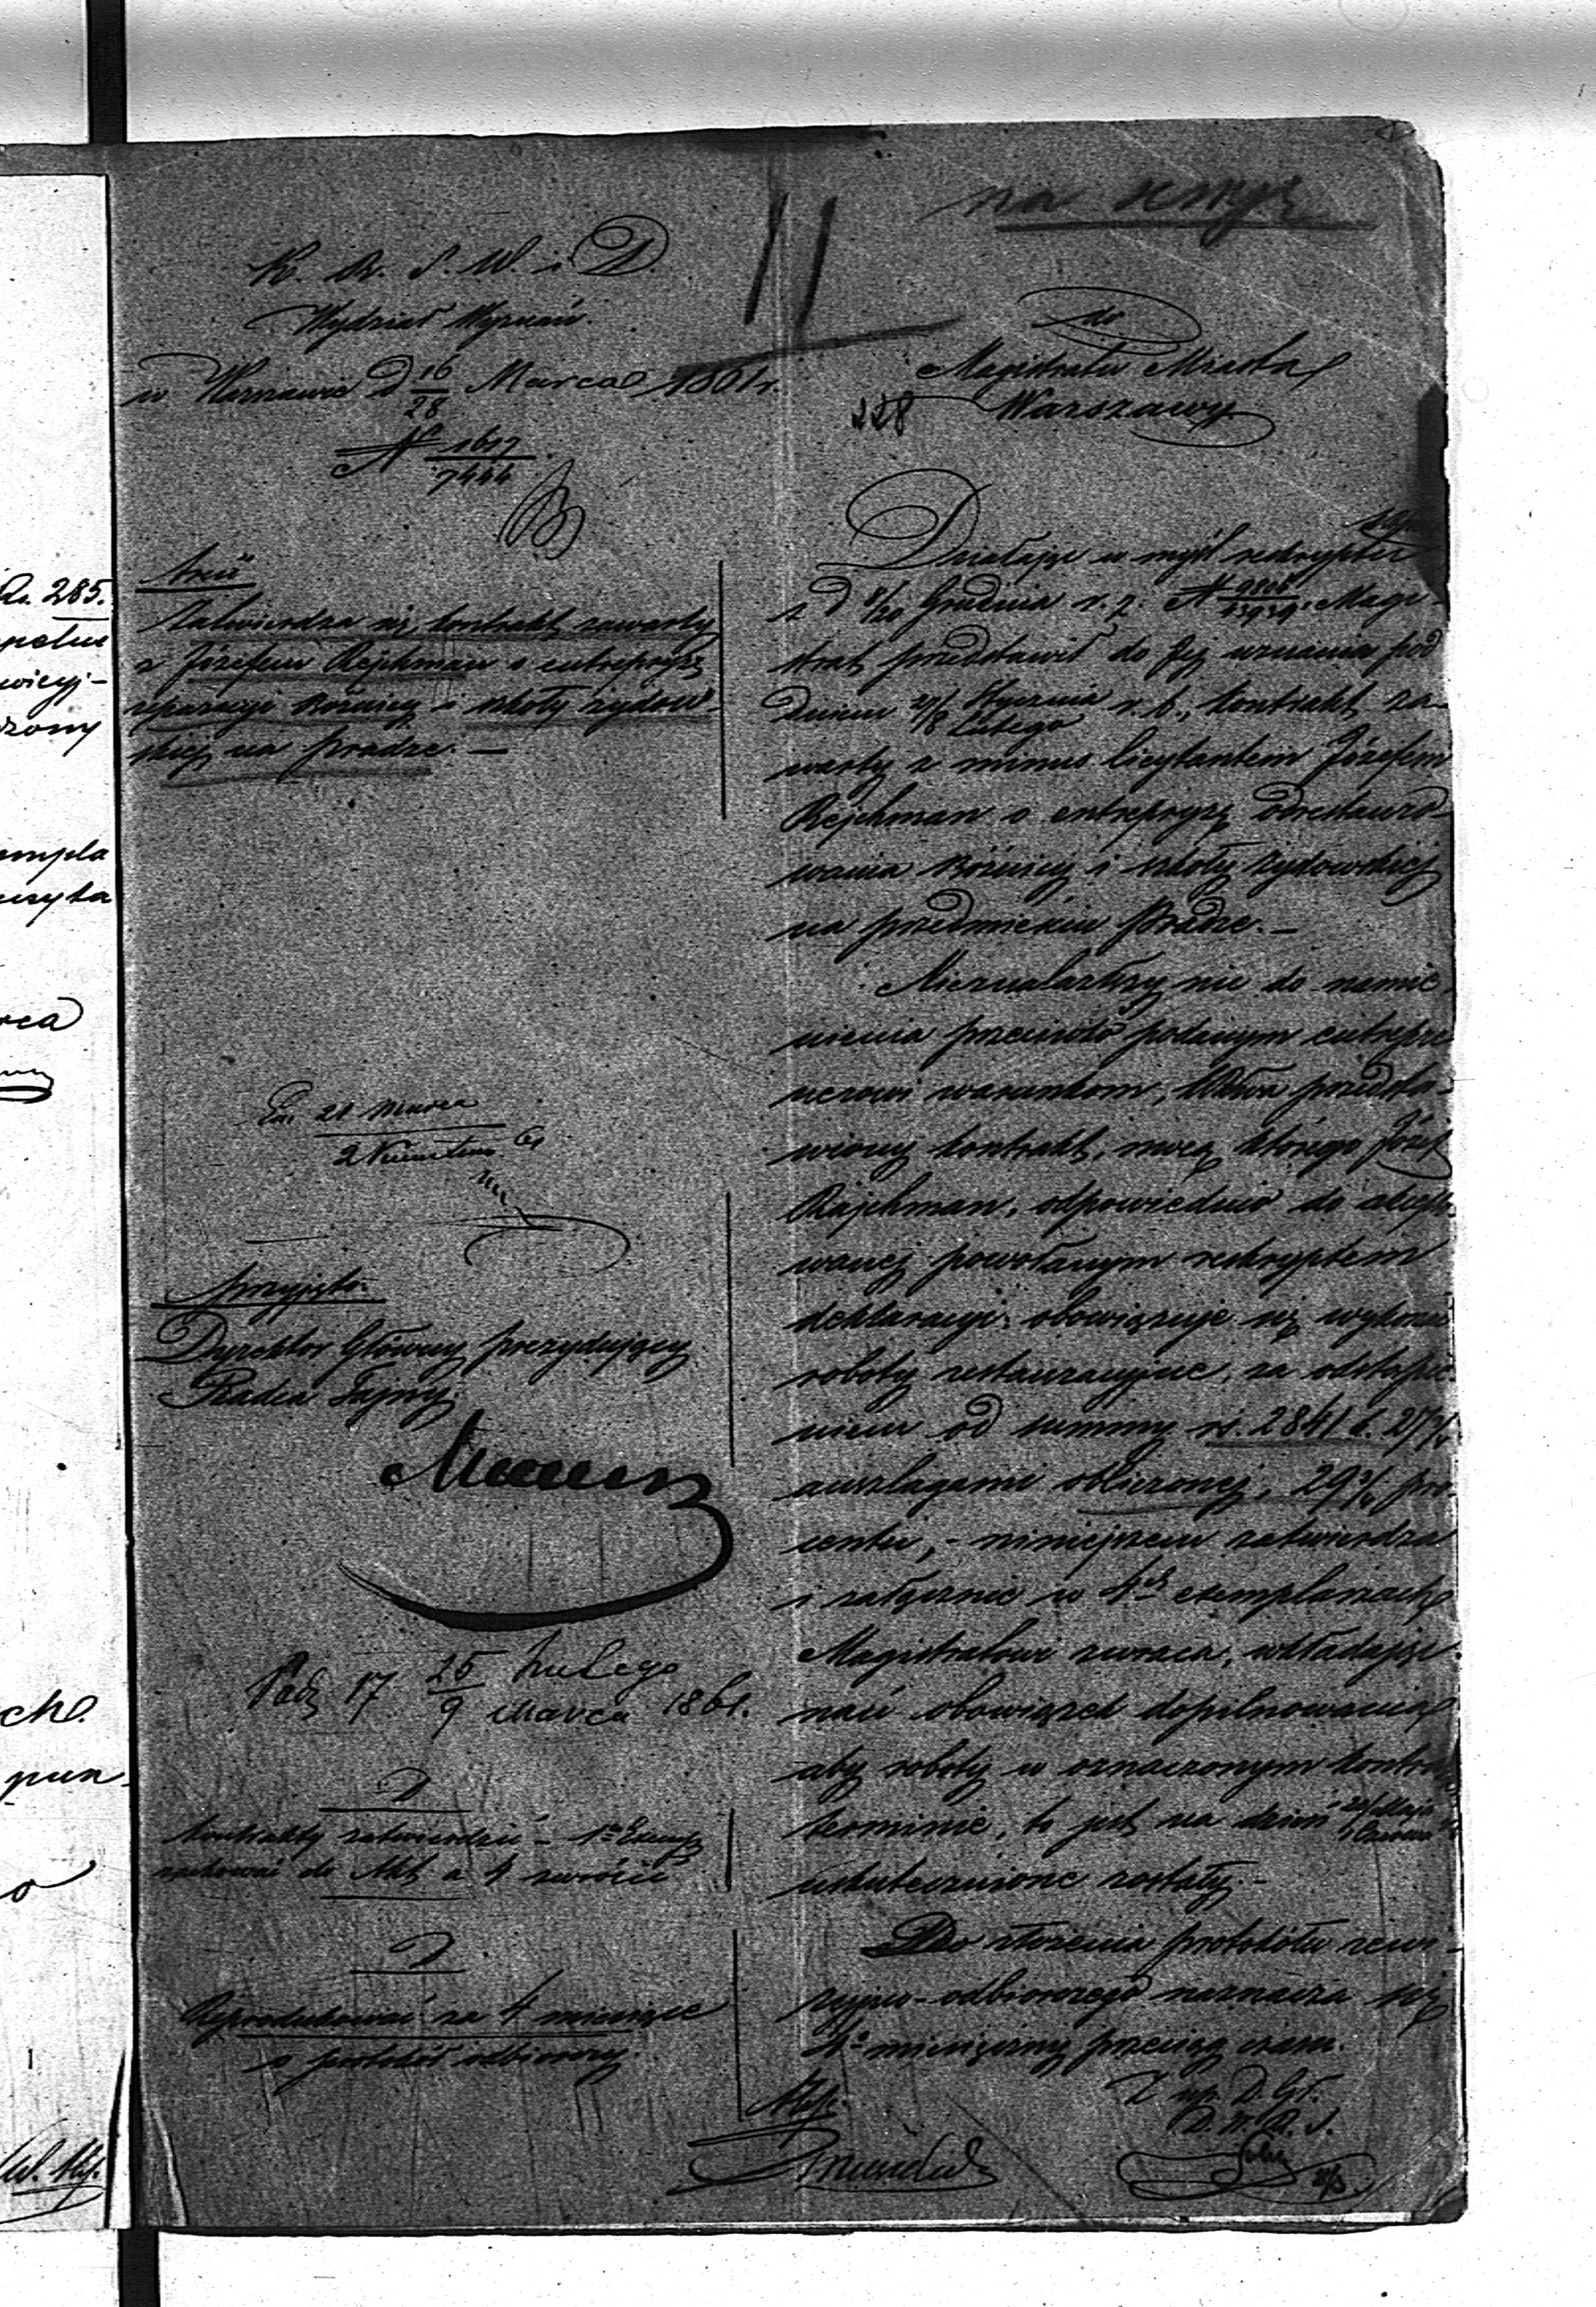 K. R. S. W. i D.
Wydział Wyznań.
w Warszawie d 16/28 Marca 1861 r.
N 1617/7444
treść
Zatwierdza się kontrakt zawarty
z Józefem Rejchman o entrepryzę
reparacyi bóżnicy i szkoły żydow-
skiej na Pradze. —
21 Marca
2 Kwietnia 61
przyjęto:
Dyrektor Główny prezydujący
Radca Tajny
17 25 Lutego
9 Marca 1861.
Kontrakty zatwierdzić – 1n Exempl
zachować do Akt a 4 zwrócić
Reprodukować za 4 miesiące
o protokół odbiorczy.
na
do
Magistratu Miasta
Warszawy
228
Działając w myśl reskryptu
z d 8/20 Grudnia r. z. N Magi-
strat przedstawił do Jej uznania pod
dniem 27/8 Stycznia/Lutego r. b., kontrakt za-
warty z minus licytantem Józefem
Rejchman o entrepryzę odrestauro-
wania bóżnicy i szkoły żydowskiej
na przedmieściu Pradze. —
Nieznalazłszy nic do namie-
nienia przeciwko podanym entrepre
nerowi warunkom, przedsta-
wiony kontrakt, mocą którego Józef
Rejchman, odpowiednio do
wanej powołanym reskryptem
deklaracyi, obowiązuje się wykonać
roboty restauracyjne, za odstąpie-
niem od summy rs. 2841 k. 27
anszlagami obliczonej, 29 3/4 pro
centu, – niniejszem zatwierdza
i załącznie w 4ch exemplarzach
Magistratowi zwraca, wkładając
nań obowiązek dopilnowania
aby roboty w oznaczonym kontr
terminie, to jest na dzień 20/1 Maja/Czerwca
uskutecznione zostały. –
Do złożenia protokółu rewi-
zyjno-odbiorczego naznacza się
4o miesięczny przeciąg czasu.
Z up. D. Gł.
D. W. R. S.